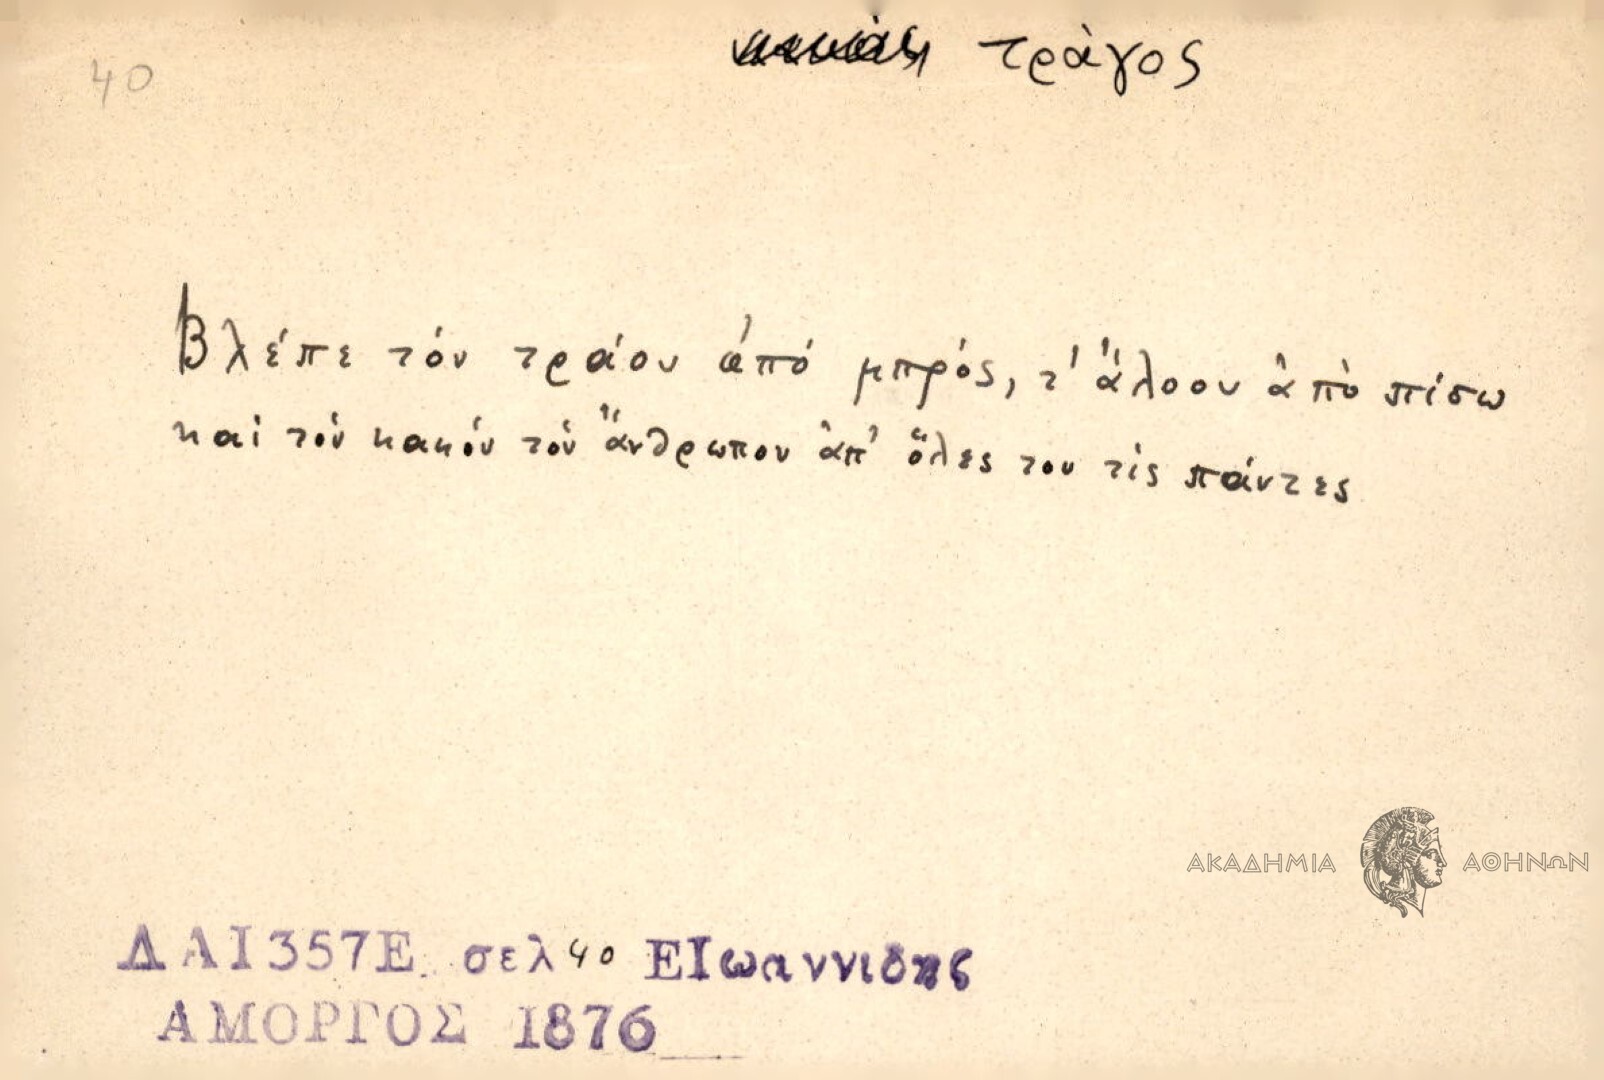 τράγος
40
Βλέπε τόν τράου ἀπό μπρός, τ' ἄλοου ἀπὸ πίσω
καί τόν κακόν τόν ἄνθρωπον ἀπ' ὅλες του τίς πάντες
ΑΚΑΔΗΜΙΑ ΑΘΗΝΩΝ
ΔΑΙ357Ε σελ 40 ΕΙωαννιδης
ΑΜΟΡΓΟΣ 1876